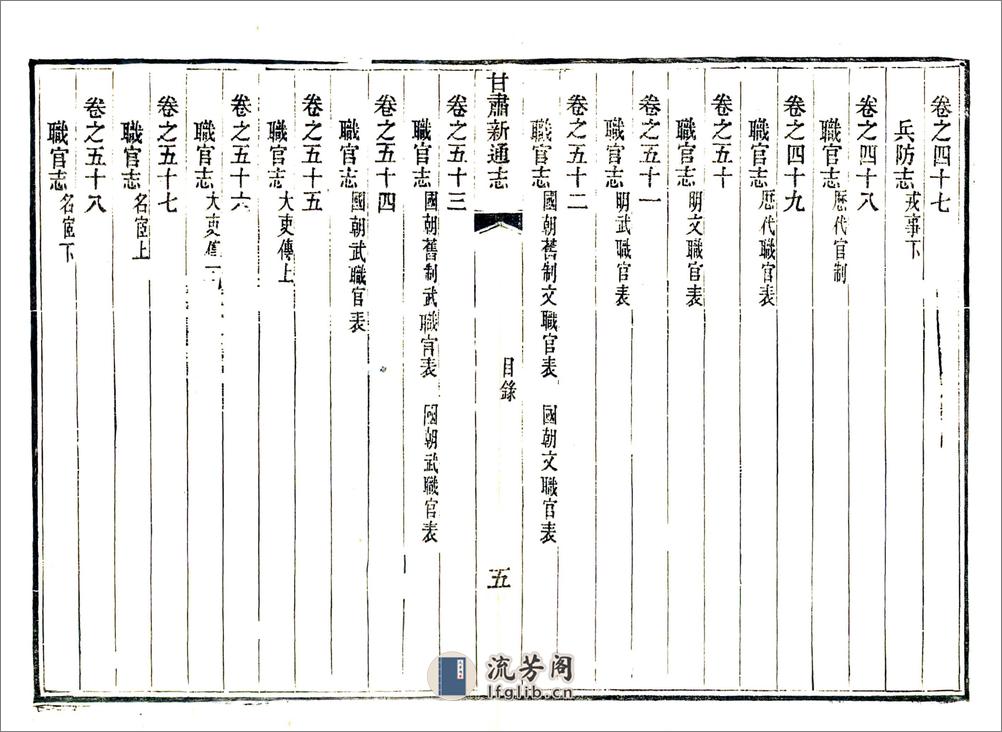 卷之四十七
兵防志 戎事下
卷之四十八
職官志 歷代官制
卷之四十九
職官志 歷代職官表
卷之五十
職官志 明文職官表
卷之五十一
職官志 明武職官表
卷之五十二
職官志 國朝舊制文職官表 國朝文職官表
甘肅新通志 目錄 五
卷之五十三
職官志 國朝舊制武職官表 國朝武職官表
卷之五十四
職官志 國朝武職官表
卷之五十五
職官志 大吏傳上
卷之五十六
職官志 大吏傳
卷之五十七
職官志 名宦上
卷之五十八
職官志 名宦下
流芳阁
lfglib.cn